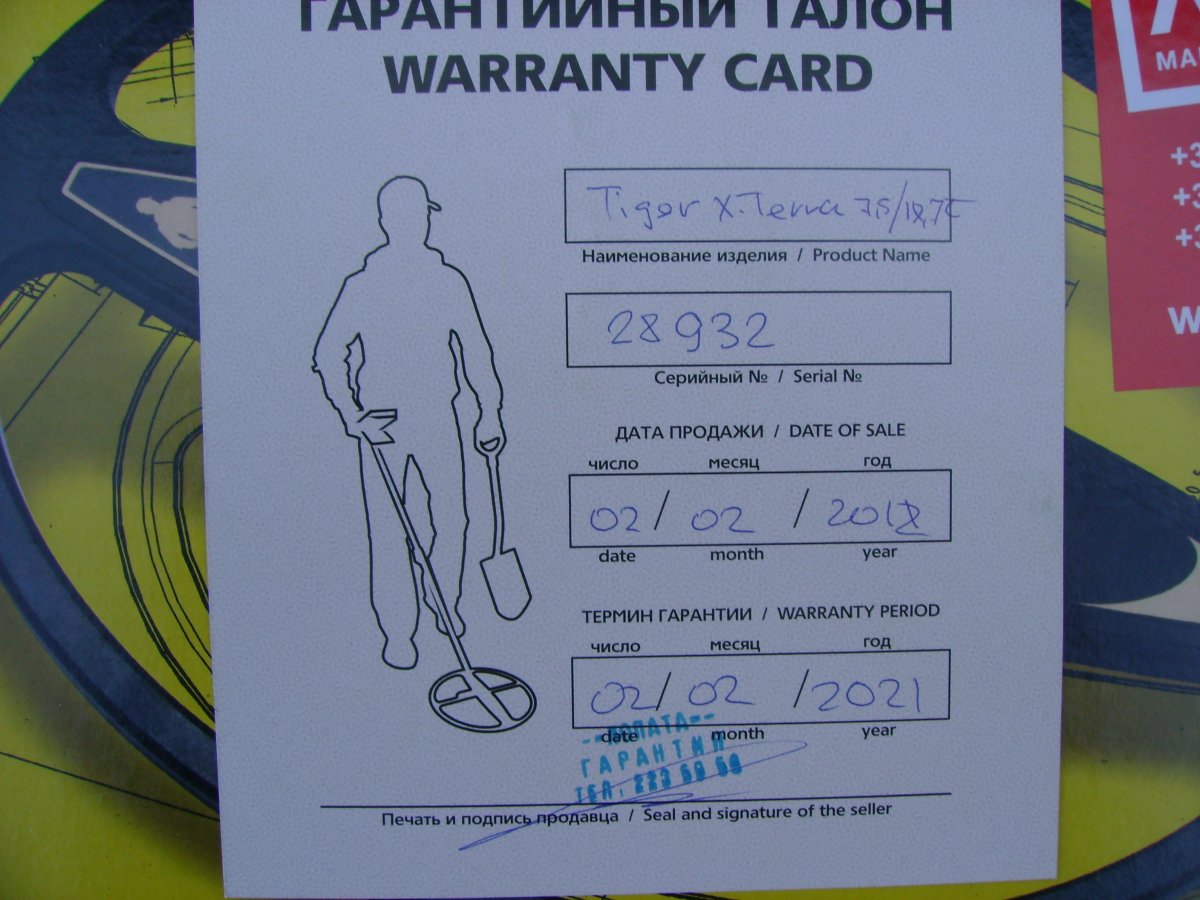 ГАРАНТИЙНЫЙ ТАЛОН
WARRANTY CARD
Tiger X-Terra 7,5/18,75
Наименование изделия / Product Name
28932
Серийный № / Serial №
ДАТА ПРОДАЖИ / DATE OF SALE
число месяц год
02 / 02 / 201
date month year
ТЕРМИН ГАРАНТИИ / WARRANTY PERIOD
число месяц год
02 / 02 / 2021
date month year
--ЛОПАТА--
ГАРАНТИЯ
ТЕЛ: 223 50 50
Печать и подпись продавца / Seal and signature of the seller
MA
+3
+3
+3
W